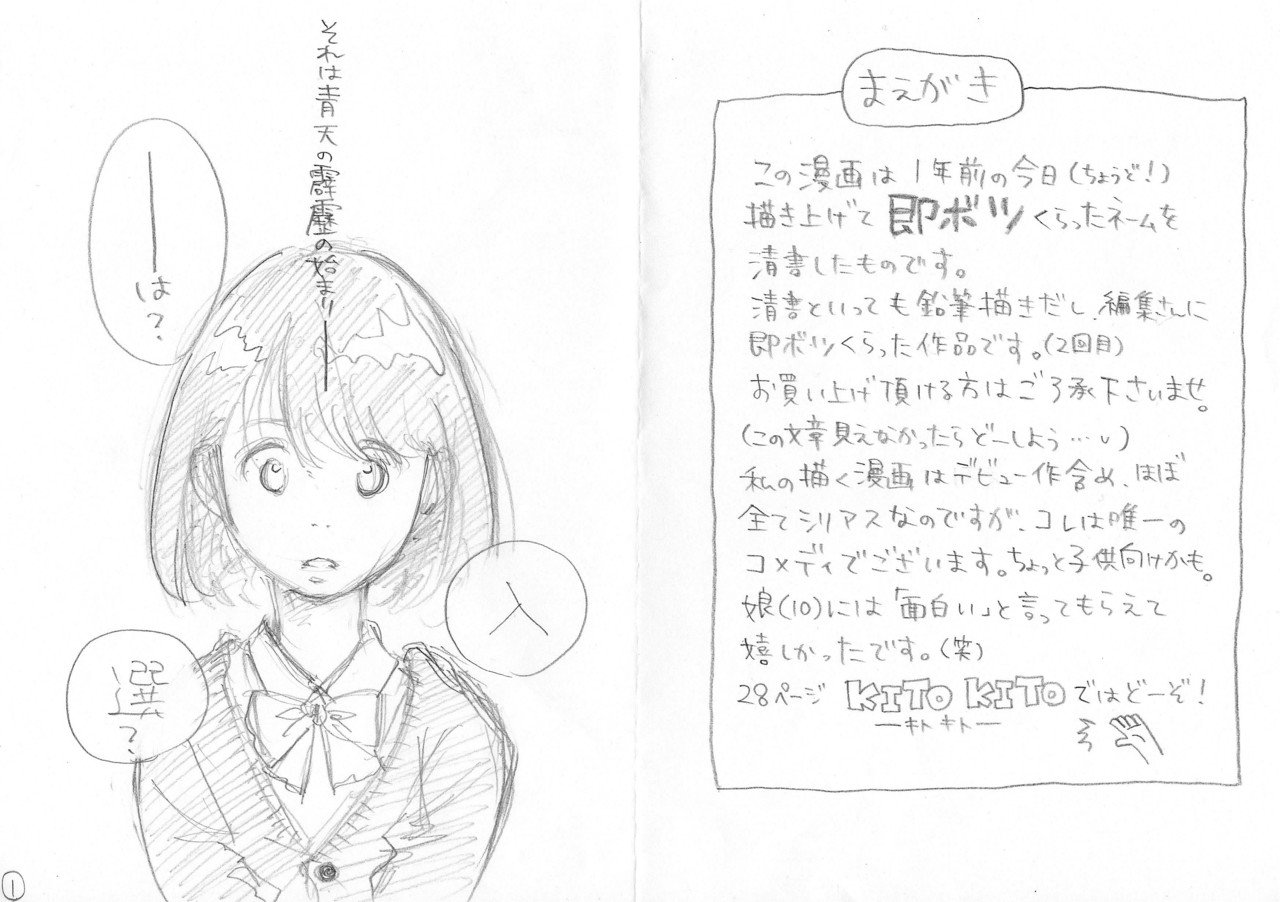 まえがき
この漫画は1年前の今日(ちょうど!)
描き上げて即ボツくらったネームを
清書したものです。
清書といっても鉛筆描きだし、編集さんに
即ボツくらった作品です。(2回目)
お買い上げ頂ける方はご了承下さいませ。
(この文章見えなかったらどーしよう…)
私の描く漫画はデビュー作含め、ほぼ
全てシリアスなのですが、コレは唯一の
コメディでございます。ちょっと子供向けかも。
娘(10)には「面白い」と言ってもらえて
嬉しかったです。(笑)
28ページ KITO KITO ではどーぞ!
―キト キト―
それは青天の霹靂の始まり―
―は?
入
選?
1